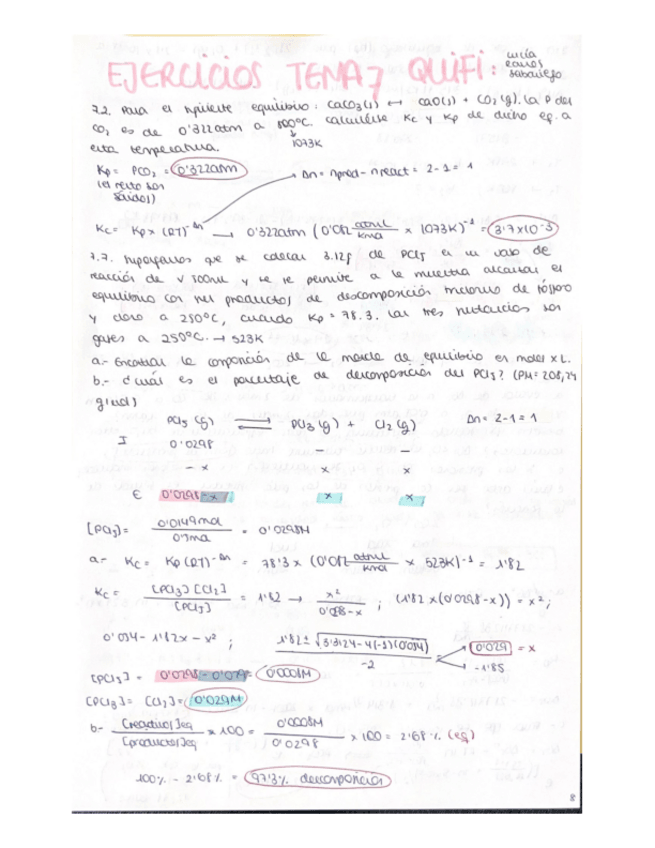 EJERCICIOS TEMA 7 QUIFI:
7.2. Para el siguiente equilibrio: CaCO3(s) ↔ CaO(s) + CO2(g). La P del
CO2 es de 0'322atm a 800ºC. calcúlese Kc y Kp de dicho eq. a
esta temperatura.
1073K
Kp = PCO2 = 0'322atm
(el resto son
sólidos)
Δn = nprod - nreact = 2-1 = 1
Kc = Kp x (RT)^-Δn → 0'322atm (0'082 atm·L/K·mol x 1073K)^-1 = 3'7x10^-3
7.7. Supongamos que se colocan 3.12g de PCl5 en un vaso de
reacción de V 500mL y se le permite a la muestra alcanzar el
equilibrio con sus productos de descomposición tricloruro de fósforo
y cloro a 250ºC, cuando Kp = 78.3. Las tres sustancias son
gases a 250ºC. → 523K
a.- Encontrar la composición de la mezcla de equilibrio en moles x L.
b.- ¿cuál es el porcentaje de descomposición del PCl5? (PM = 208,24
g/mol)
PCl5 (g) ⇌ PCl3 (g) + Cl2 (g) Δn = 2-1 = 1
I 0'0298 - -
-x x x
E 0'0298-x x x
[PCl5] = 0'0149mol / 0'5mol = 0'0298M
a.- Kc = Kp (RT)^-Δn = 78'3 x (0'082 atm·L/K·mol x 523K)^-1 = 1'82
Kc = [PCl3][Cl2] / [PCl5] = 1'82 → x² / 0'0298-x ; (1'82 x (0'0298-x)) = x² ;
0'054 - 1'82x - x² ; 1'82 ± √3'3124-4(-1)(0'054) / -2 → 0'029 = x
→ -1'85
[PCl5] = 0'0298 - 0'029 = 0'0008M
[PCl3] = [Cl2] = 0'029M
b.- [reactivo]eq / [producto]eq x 100 = 0'0008M / 0'0298 x 100 = 2'68% (eq)
100% - 2'68% = 97'3% descomposición
8